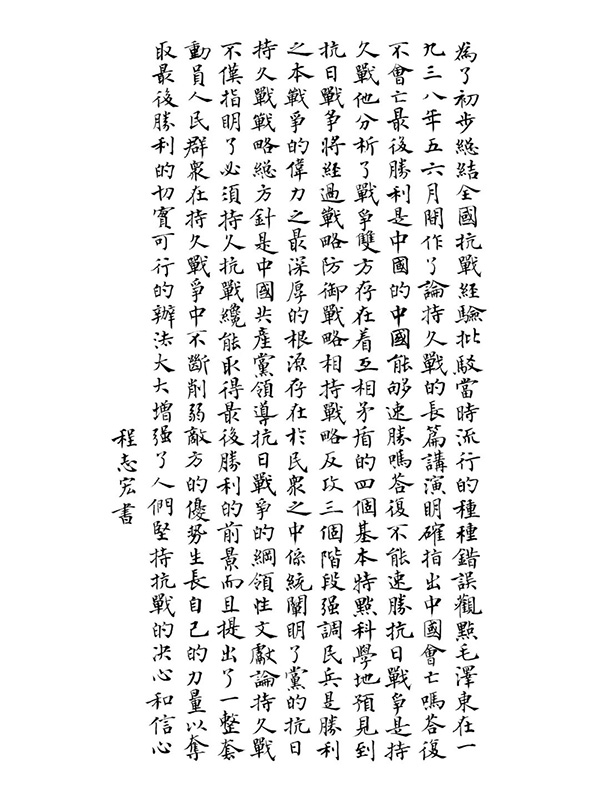 為了初步總結全國抗戰經驗批駁當時流行的種種錯誤觀點毛澤東在一
九三八年五六月間作了論持久戰的長篇講演明確指出中國會亡嗎答復
不會亡最後勝利是中國的中國能夠速勝嗎答復不能速勝抗日戰爭是持
久戰他分析了戰爭雙方存在着互相矛盾的四個基本特點科學地預見到
抗日戰爭將經過戰略防御戰略相持戰略反攻三個階段强調民兵是勝利
之本戰爭的偉力之最深厚的根源存在於民衆之中係統闡明了黨的抗日
持久戰戰略總方針是中國共產黨領導抗日戰爭的綱領性文獻論持久戰
不僅指明了必須持久抗戰纔能取得最後勝利的前景而且提出了一整套
動員人民群衆在持久戰爭中不斷削弱敵方的優勢生長自己的力量以奪
取最後勝利的切實可行的辦法大大增强了人們堅持抗戰的决心和信心
程志宏書